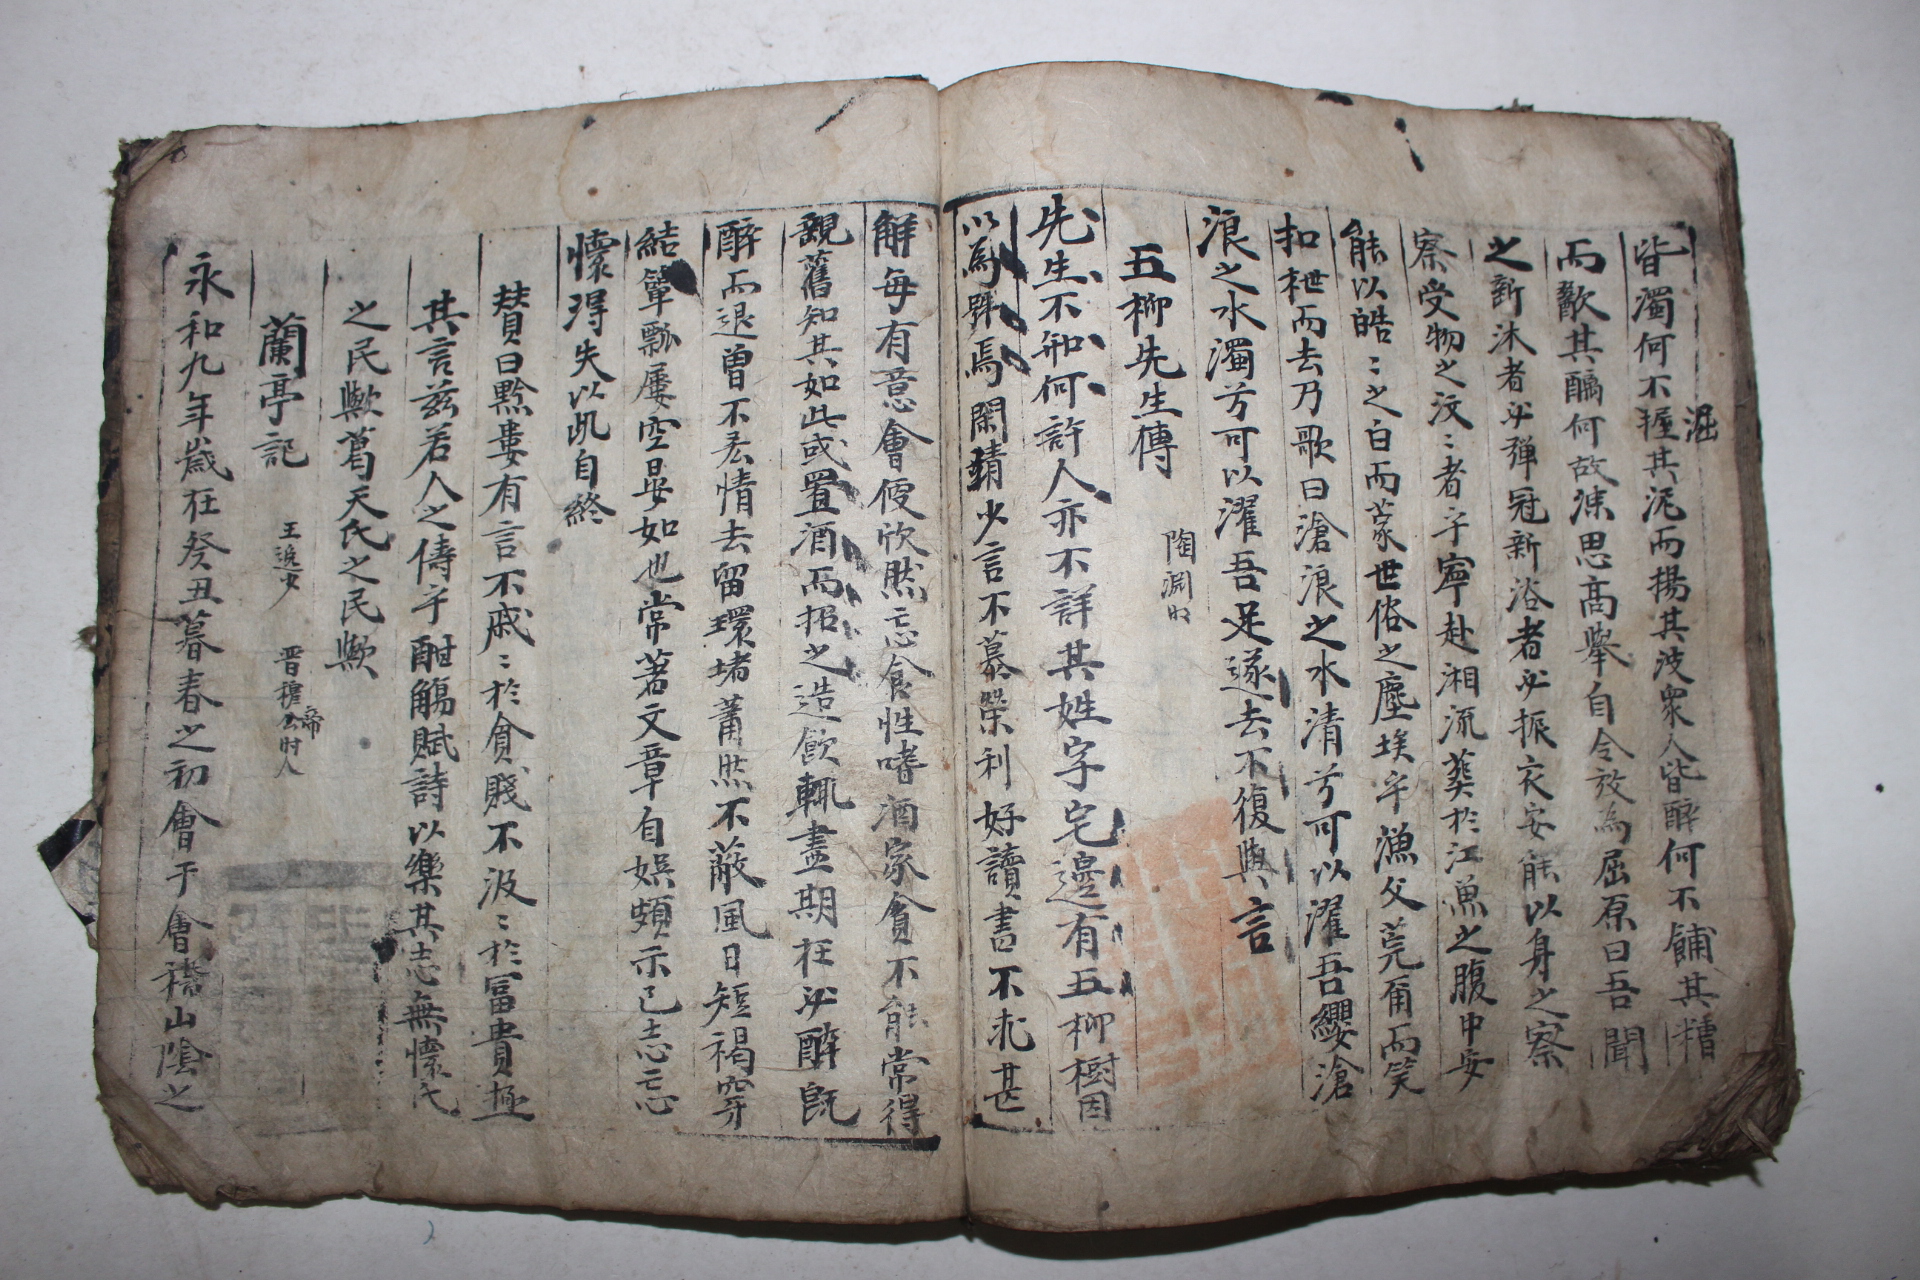 皆濁何不握其泥而揚其波衆人皆醉何不餔其糟
淈
而歠其醨何故深思高擧自令放爲屈原曰吾聞
之新沐者必彈冠新浴者必振衣安能以身之察
察受物之汶〻者乎寧赴湘流葬於江魚之腹中安
能以皓〻之白而蒙世俗之塵埃乎漁父莞爾而笑
扣枻而去乃歌曰滄浪之水清兮可以濯吾纓滄
浪之水濁兮可以濯吾足遂去不復與言
五柳先生傳 陶淵明
先生不知何許人亦不詳其姓字宅邊有五柳樹因
以爲號焉閑靖少言不慕榮利好讀書不求甚
解每有意會便欣然忘食性嗜酒家貧不能常得
親舊知其如此或置酒而招之造飮輒盡期在必醉旣
醉而退曾不吝情去留環堵蕭然不蔽風日短褐穿
結簞瓢屢空晏如也常著文章自娛頗示己志忘
懷得失以此自終
賛曰黔婁有言不戚〻於貧賤不汲〻於冨貴極
其言兹若人之儔乎酣觴賦詩以樂其志無懷氏
之民歟葛天氏之民歟
蘭亭記 王逸少 晋穆帝時人
永和九年歲在癸丑暮春之初會于會稽山陰之